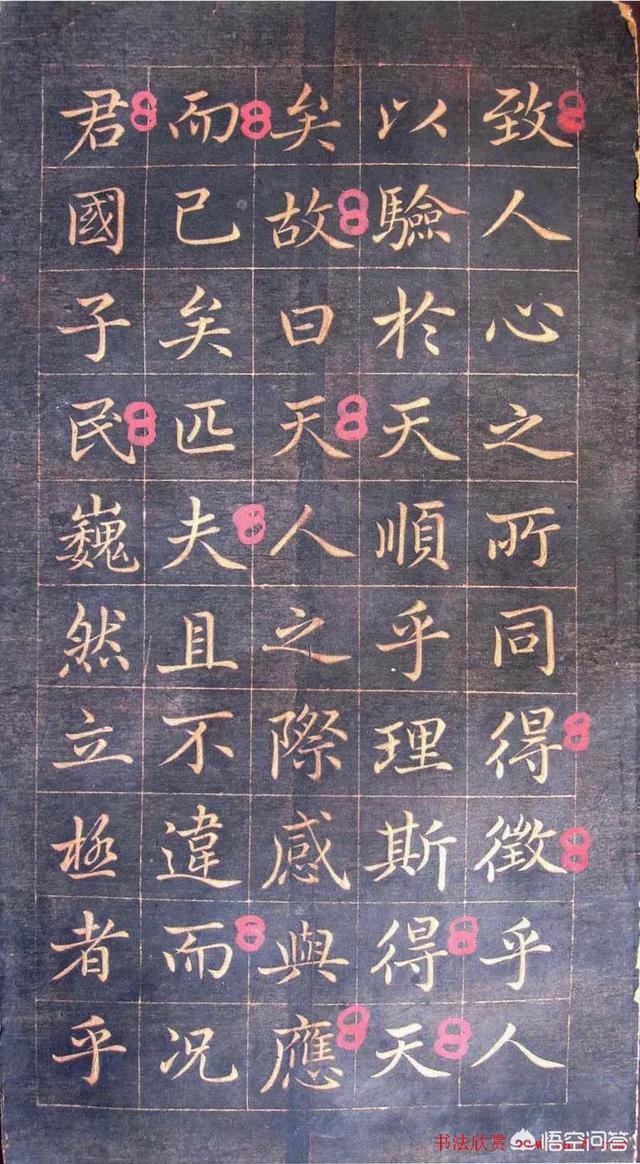 致人心之所同得徵乎人
以驗於天順乎理斯得天
矣故曰天人之際感與應
而已矣匹夫且不違而况
君國子民巍然立極者乎
书法欣赏
悟空问答